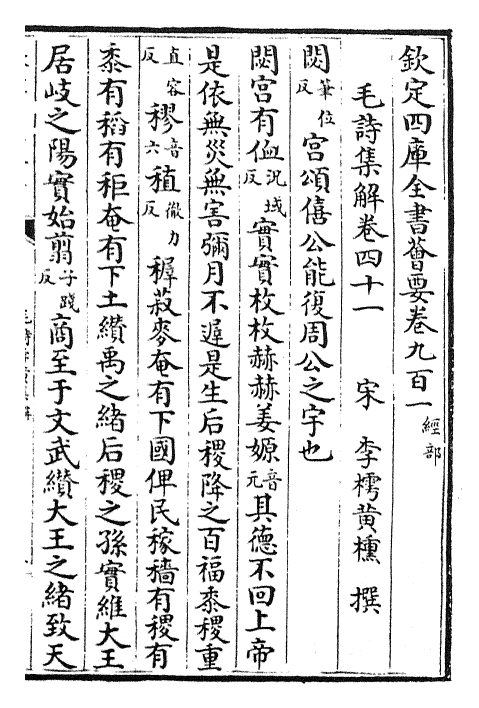 欽定四庫全書薈要卷九百一 經部
毛詩集解卷四十一 宋 李樗黃櫄 撰
閟筆位反宮頌僖公能復周公之宇也
閟宮有侐況域反實實枚枚赫赫姜嫄音元其德不回上帝
是依無災無害彌月不遲是生后稷降之百福黍稷重
直容反穋音六稙徵力反穉菽麥奄有下國俾民稼穡有稷有
黍有稻有秬奄有下土纘禹之緒后稷之孫實維大王
居岐之陽實始翦子踐反商至于文武纘大王之緒致天